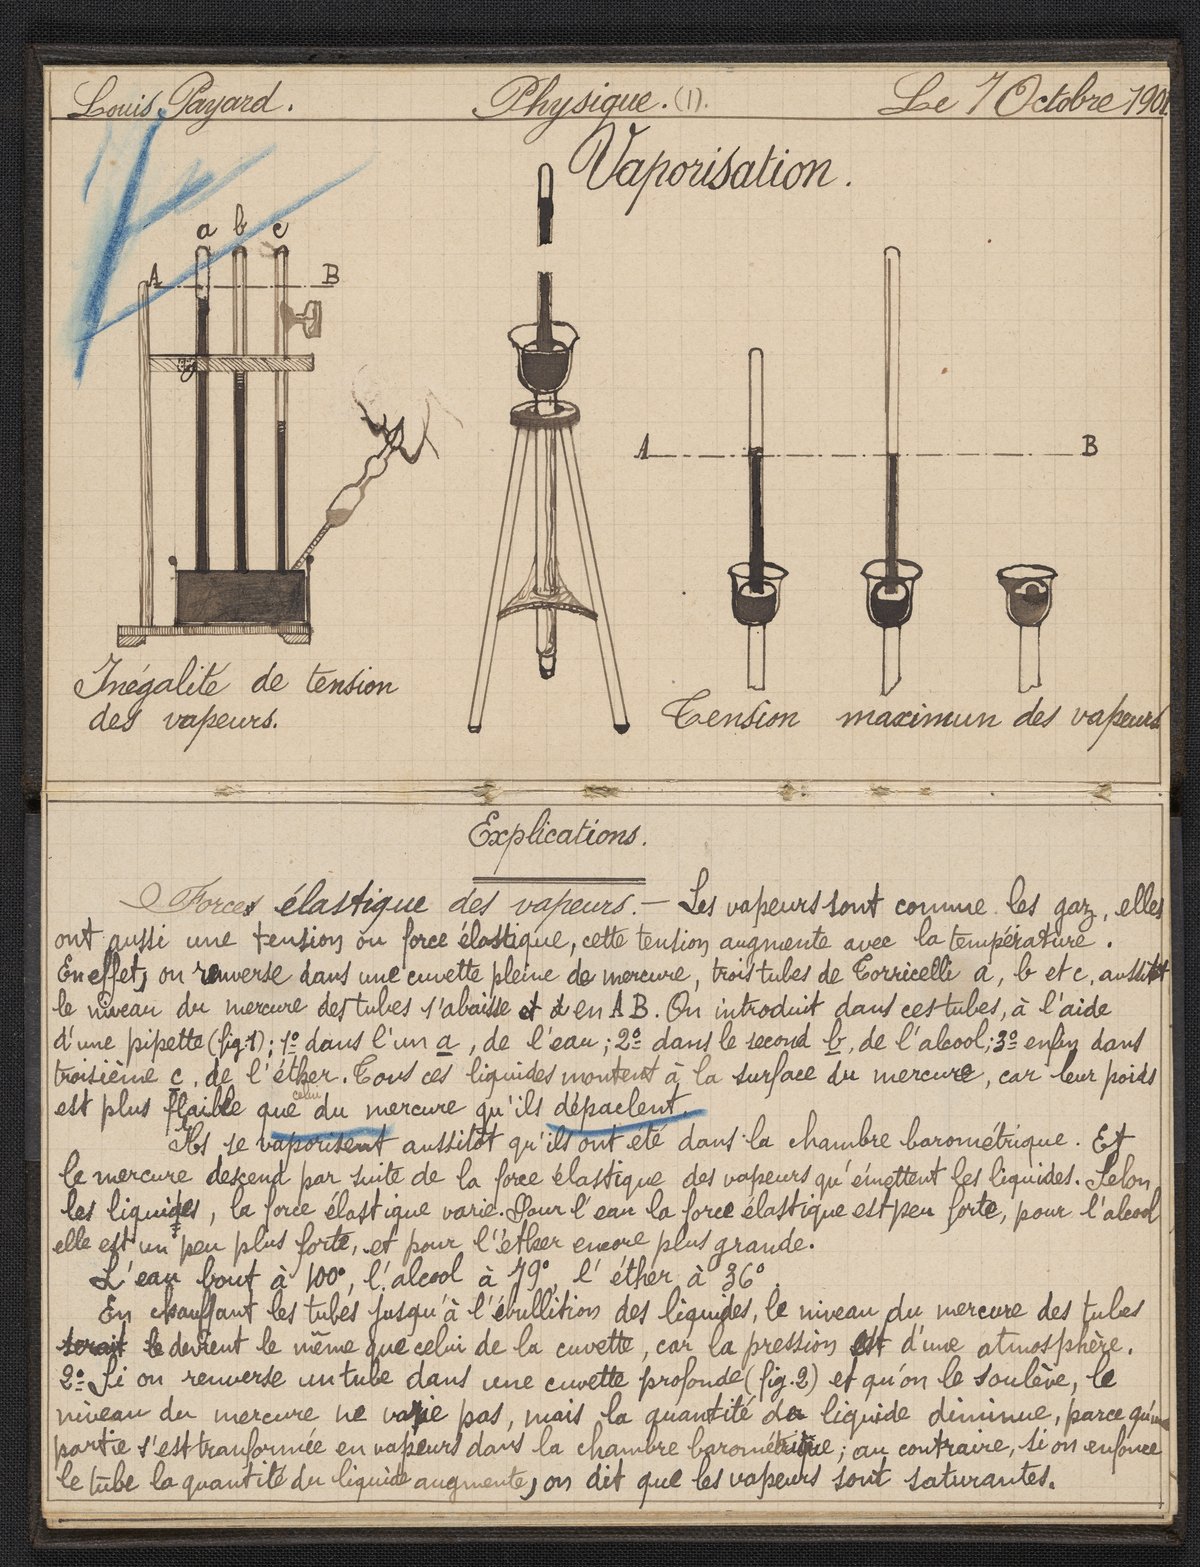 Louis Payard. Physique. (1). Le 7 Octobre 190
Vaporisation.
a b c
A B
A B
Inégalité de tension
des vapeurs.
Tension maximun des vapeurs
Explications.
Forces élastique des vapeurs. — Les vapeurs sont comme les gaz, elles
ont aussi une tension ou force élastique, cette tension augmente avec la température.
En effet, on renverse dans une cuvette pleine de mercure, trois tubes de Torricelli a, b et c, aussitôt
le niveau du mercure des tubes s'abaisse en AB. On introduit dans ces tubes, à l'aide
d'une pipette (fig. 1); 1º dans l'un a, de l'eau; 2º dans le second b, de l'alcool; 3º enfin dans
troisième c, de l'éther. Tous ces liquides montent à la surface du mercure, car leur poids
celui
est plus faible que du mercure qu'ils dépaclent.
Ils se vaporisent aussitôt qu'ils ont été dans la chambre barométrique. Et
le mercure descend par suite de la force élastique des vapeurs qu'émettent les liquides. Selon
les liquides, la force élastique varie. Pour l'eau la force élastique est peu forte, pour l'alcool
elle est un peu plus forte, et pour l'éther encore plus grande.
L'eau bout à 100°, l'alcool à 79°, l'éther à 36°.
En chauffant les tubes jusqu'à l'ébullition des liquides, le niveau du mercure des tubes
serait le devient le même que celui de la cuvette, car la pression est d'une atmosphère.
2º Si on renverse un tube dans une cuvette profonde (fig. 2) et qu'on le soulève, le
niveau du mercure ne varie pas, mais la quantité de liquide diminue, parce qu'une
partie s'est tranformée en vapeurs dans la chambre barométrique; au contraire, si on enfonce
le tube la quantité du liquide augmente, on dit que les vapeurs sont saturantes.